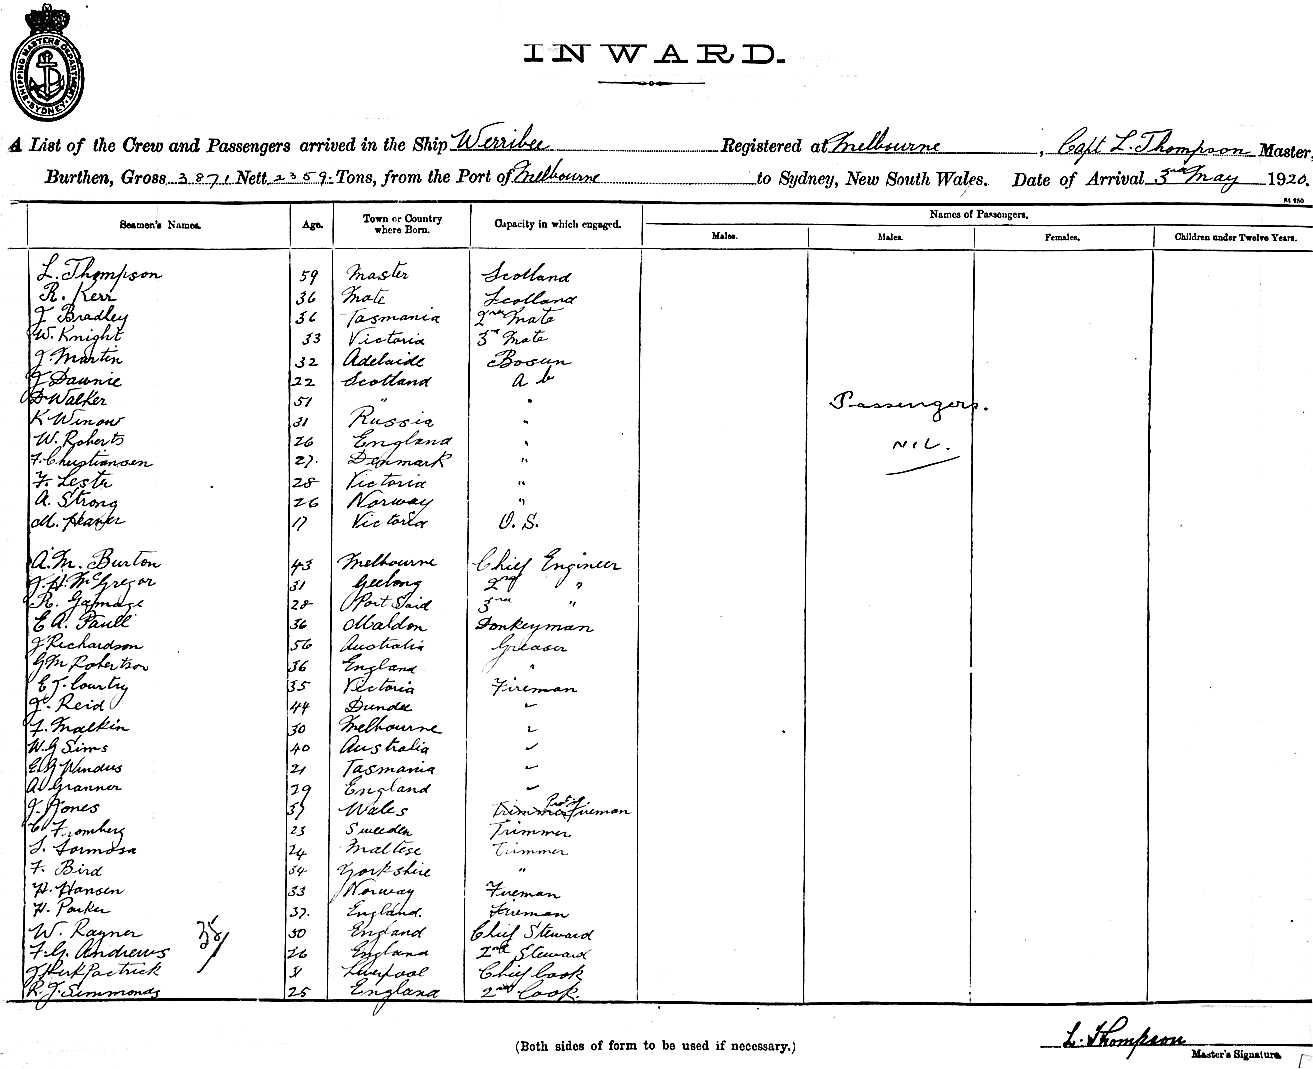 SHIPPING MASTERS DEPARTMENT SYDNEY
INWARD.
A List of the Crew and Passengers arrived in the Ship Werribee Registered at Melbourne, Capt L. Thompson Master,
Burthen, Gross 3871 Nett 2359 Tons, from the Port of Melbourne to Sydney, New South Wales. Date of Arrival 3rd May 1920.
Seamen's Names. Age. Town or Country where Born. Capacity in which engaged. Names of Passengers.
Males. Males. Females. Children under Twelve Years.
L. Thompson 59 Master Scotland
R. Kerr 36 Mate Scotland
J. Bradley 36 Tasmania 2nd Mate
W. Knight 33 Victoria 3rd Mate
J. Martin 32 Adelaide Bosun
J Dawnie 22 Scotland A b
D Walker 51 " "
Passengers.
K Winow 31 Russia "
W. Roberts 26 England "
NIL.
F. Christiansen 27. Denmark "
F. Lester 28 Victoria "
A. Strong 26 Norway "
M. 17 Victoria O. S.
A. M. Burton 43 Melbourne Chief Engineer
J. H. McGregor 31 Geelong 2nd "
R. Gamage 28 Port Said 3rd "
E A. Paull 36 Maldon Donkeyman
J Richardson 56 Australia Greaser
G M Robertson 36 England "
E J. Courtry 35 Victoria Fireman
J. Reid 44 Dundee "
F. Malkin 30 Melbourne "
W. G Sims 40 Australia "
E G Windus 21 Tasmania "
A Granner 29 England "
J. Jones 37 Wales Trimmer Fireman
C Fromberg 23 Sweeden Trimmer
S. Formosa 24 Maltese Trimmer
F. Bird 34 Yorkshire "
H. Hansen 33 Norway Fireman
H. Parker 37. England. Fireman
W. Rayner 30 England Chief Steward
35/
F. G. Andrews 26 England 2nd Steward
J Kirkpactrick 31 Liverpool Chief Cook
R. J. Simmonds 25 England 2nd Cook.
(Both sides of form to be used if necessary.)
L. Thompson
Master's Signature.